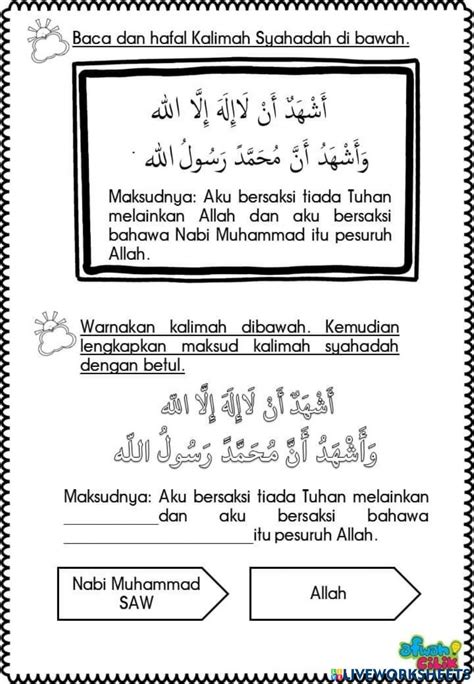 Baca dan hafal Kalimah Syahadah di bawah.
أَشْهَدُ أَنْ لَاإِلَهَ إِلَّا الله
وَأَشْهَدُ أَنَّ مُحَمَّدً رَسُولُ الله
Maksudnya: Aku bersaksi tiada Tuhan
melainkan Allah dan aku bersaksi
bahawa Nabi Muhammad itu pesuruh
Allah.
Warnakan kalimah dibawah. Kemudian
lengkapkan maksud kalimah syahadah
dengan betul.
أَشْهَدُ أَنْ لَاإِلَهَ إِلَّا الله
وَأَشْهَدُ أَنَّ مُحَمَّدً رَسُولُ الله
Maksudnya: Aku bersaksi tiada Tuhan melainkan
____________dan aku bersaksi bahawa
________________________itu pesuruh Allah.
Nabi Muhammad
SAW
Allah
afwah
cilik
LIVEWORKSHEETS